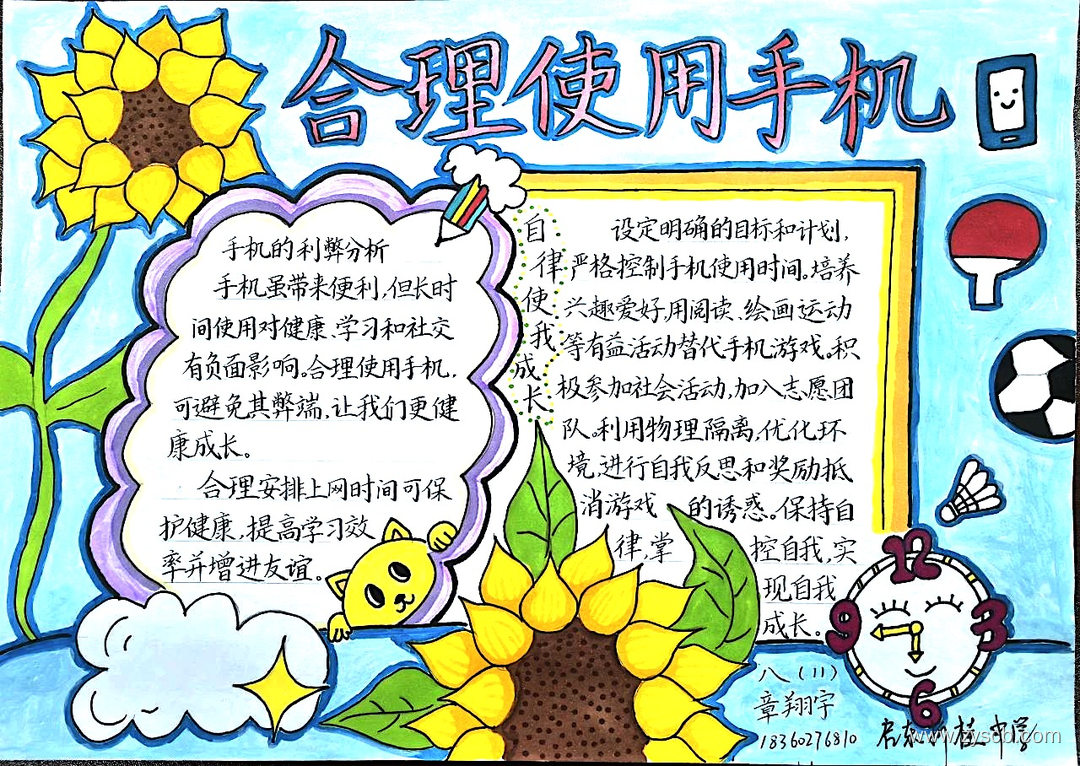 合理使用手机
手机的利弊分析
手机虽带来便利,但长时
间使用对健康、学习和社交
有负面影响。合理使用手机,
可避免其弊端,让我们更健
康成长。
合理安排上网时间可保
护健康,提高学习效
率并增进友谊。
自律使我成长
设定明确的目标和计划,
严格控制手机使用时间。培养
兴趣爱好,用阅读、绘画运动
等有益活动替代手机游戏。积
极参加社会活动,加入志愿团
队。利用物理隔离,优化环
境,进行自我反思和奖励抵
消游戏 的诱惑。保持自
律,掌 控自我,实
现自我
成长。
12
3
6
9
八(11)
章翔宇
18360276810
中学
www.zyscbl.com